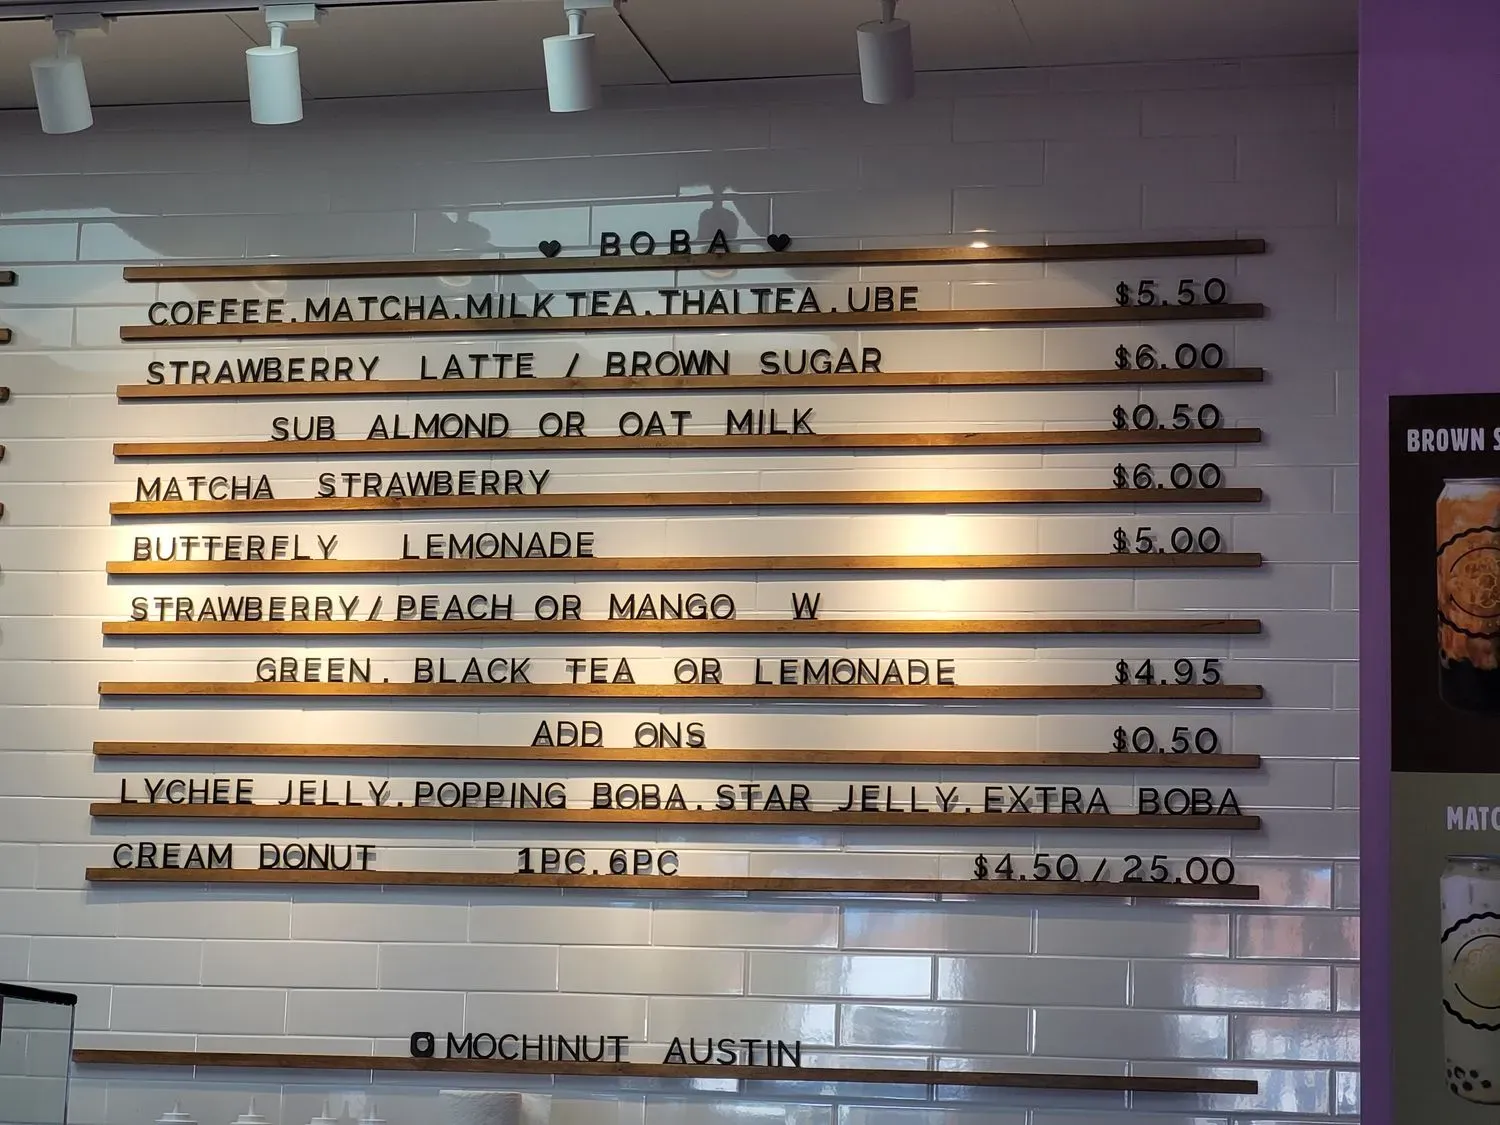 ♥ BOBA ♥
COFFEE.MATCHA.MILK TEA.THAI TEA.UBE $5.50
STRAWBERRY LATTE / BROWN SUGAR $6.00
SUB ALMOND OR OAT MILK $0.50
MATCHA STRAWBERRY $6.00
BUTTERFLY LEMONADE $5.00
STRAWBERRY/PEACH OR MANGO W
GREEN. BLACK TEA OR LEMONADE $4.95
ADD ONS $0.50
LYCHEE JELLY.POPPING BOBA.STAR JELLY.EXTRA BOBA
CREAM DONUT 1PC.6PC $4.50/25.00
MOCHINUT AUSTIN
BROWN